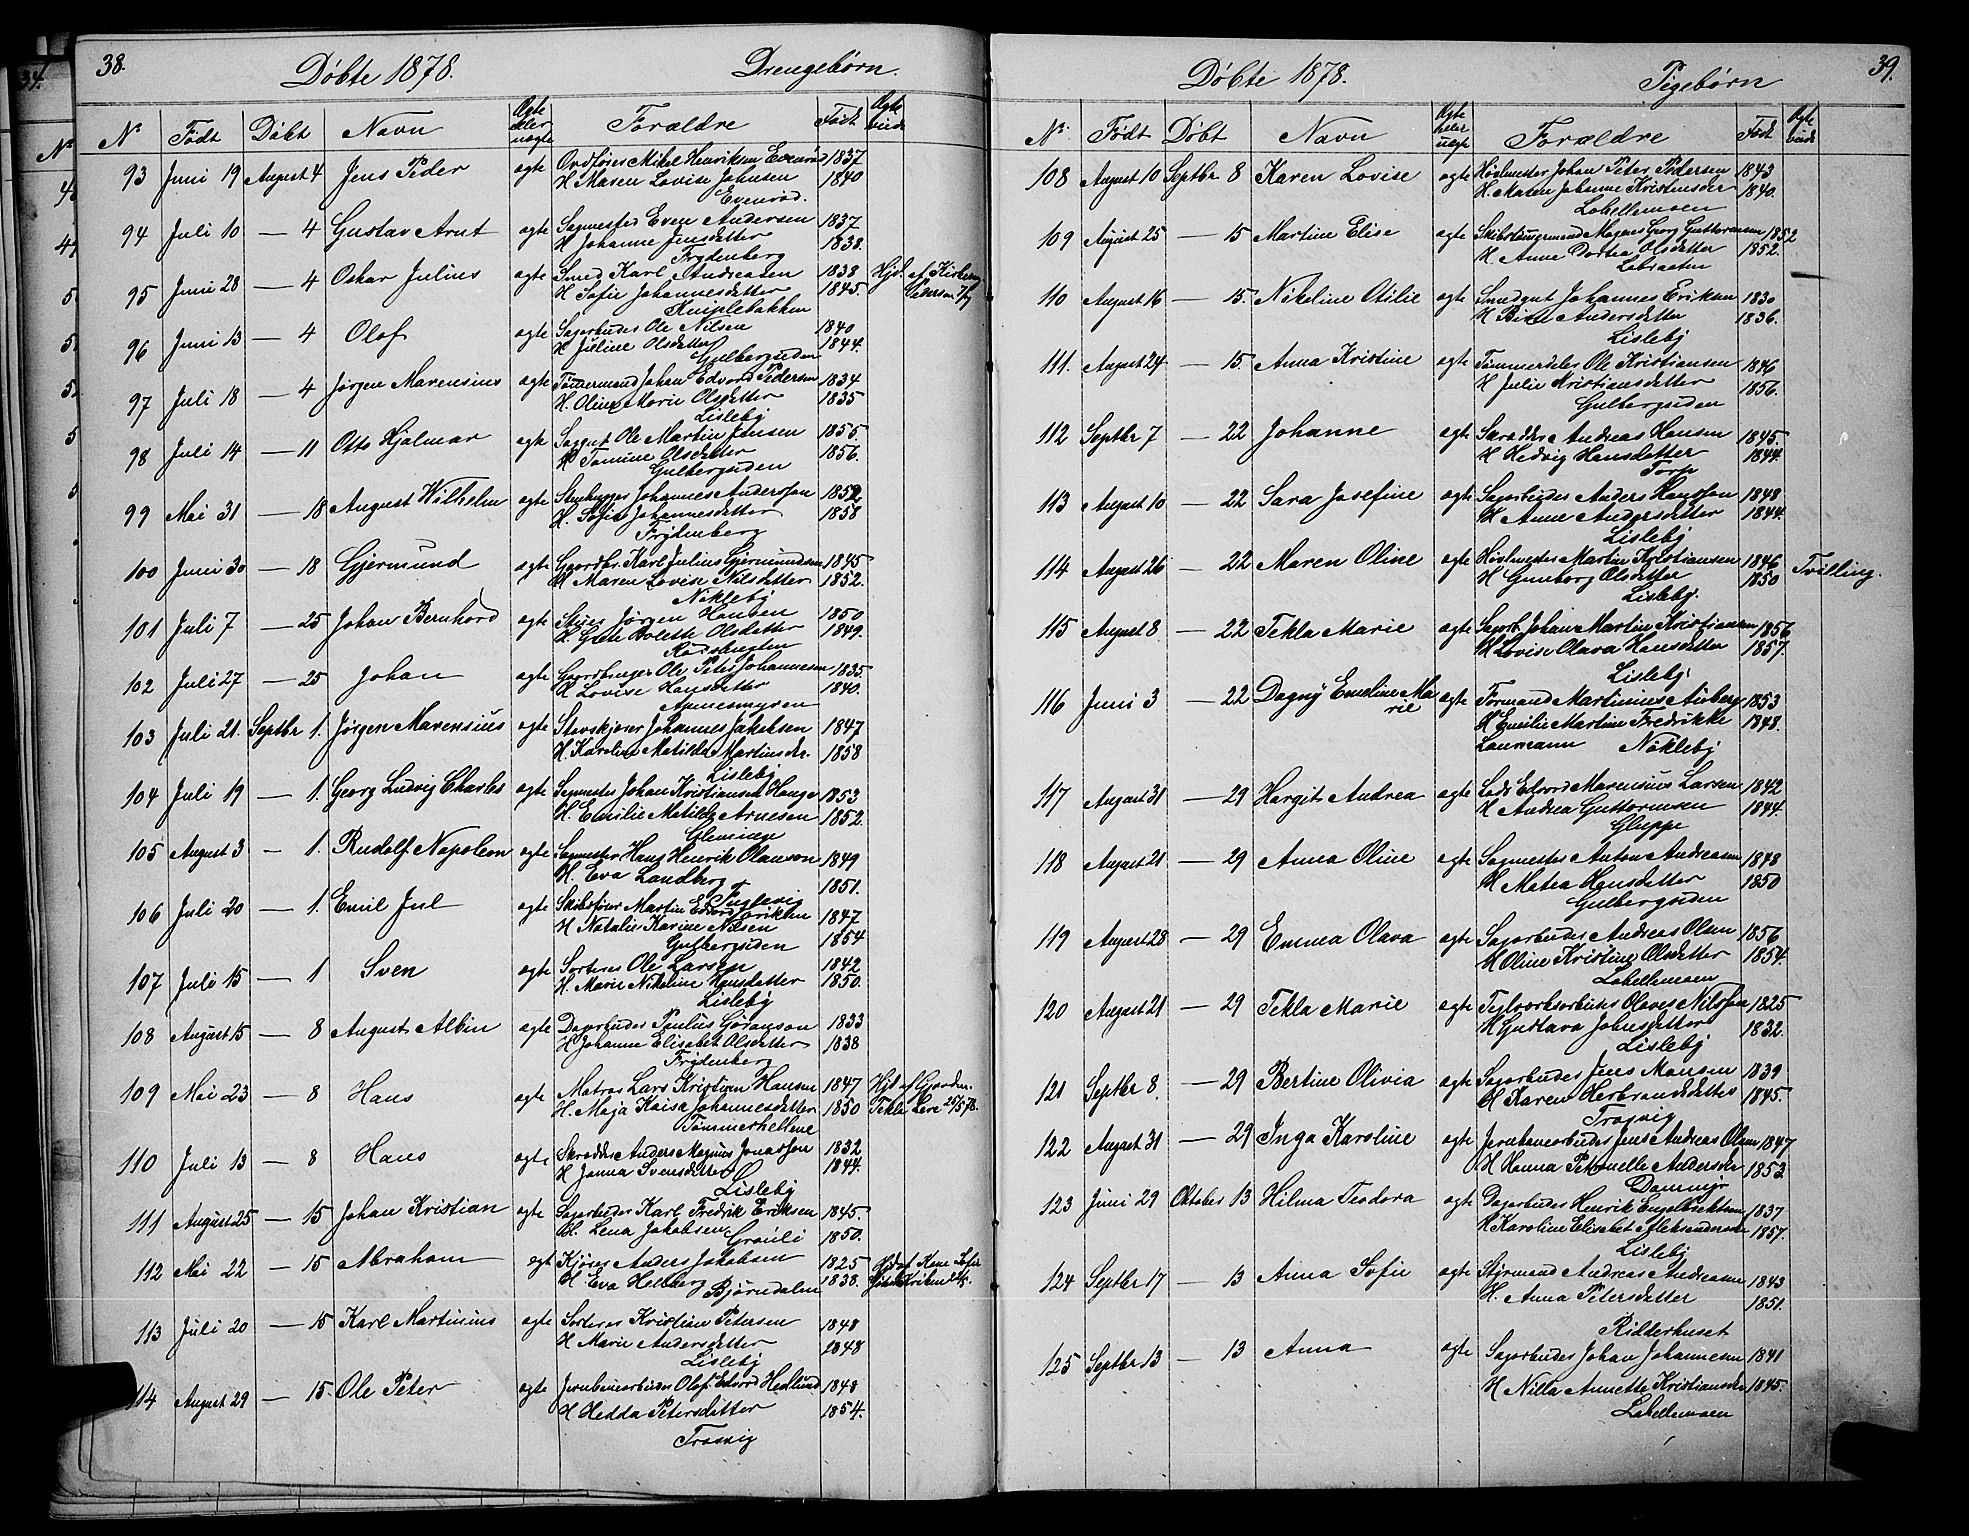 38.
Döbte 1878. Drengebørn.
No Født Döbt Navn Ægte eller uægte Forældre Født
93 Juni 19 August 4 Jens Peder ægte Mikel Henriksen Evenrød 1837
H Maren Lovise Johnsen 1840
Evenrød.
94 Juli 10 — 4 Gustav Arnt ægte Sagmester Even Andersen 1837
H Johanne Jensdatter 1838.
Frydenberg
95 Juni 28 — 4 Oskar Julius ægte Smed Karl Andreasen 1838 Hjd. af
H Sofie Johannesdatter 1845. Pedersen
Kniplebakken
96 Juni 13 — 4 Olof ægte Sagarbeider Ole Nilsen 1840
H Juline Olsdatter 1844.
Gulbergsiden
97 Juli 18 — 4 Jørgen Marensius ægte Tømmermand Johan Edvard Pedersen 1834
H. Oline Marie Olsdatter 1835
Lisleby
98 Juli 14 — 11 Otto Hjalmar ægte Saggut Ole Martin Jensen 1855.
H Tomine Olsdatter 1856.
Gulbergsiden
99 Mai 31 — 18 August Wilhelm ægte Stenhugger Johannes Andersson 1852
H. Sofie Johannesdatter 1858
Frydenberg
100 Juni 30 — 18 Gjermund ægte Gaardbr. Karl Julius Gjermundsen 1845
H Maren Lovise Nilsdatter 1852.
Nöklebÿ
101 Juli 7 — 25 Johan Bernhard ægte Jørgen Hansen 1850
H. Bolette Olsdatter 1849.
102 Juli 27 — 25 Johan ægte Gaardbruger Ole Peter Johannesen 1835.
H Lovise Hansdatter 1840.
103 Juli 21. Septbr 1. Jørgen Marensius ægte Stavskjærer Johannes Jakobsen 1847
H. Karoline Matilda Martinsdr. 1858
Lisleby
104 Juli 19 — 1. Georg Ludvig Charles ægte Sagmester Johan Kristiansen Hauge 1853
H. Emilie Matilde Arnesen 1852.
Glemmen
105 August 3 — 1. Rudolf Napoleon ægte Sagmester Hans Henrik Olausson 1849
H. Eva Landberg 1851.
106 Juli 20 — 1. Emil Jul ægte Skibsfører Martin Edvard Eriksen 1847
H Natalie Karine Nilsen 1854
Gulbergsiden
107 Juli 15 — 1 Sven ægte Sorterer Ole Larsen 1842
H. Marie Nikoline Hansdatter 1850.
Lisleby
108 August 15 — 8 August Albin ægte Dagarbeider Paulus Göranson 1833
H Johanne Elisabet Olsdatter 1838
Frydenberg
109 Mai 23 — 8 Hans ægte Matros Lars Kristian Hansen 1847 Hjd af Gjordm.
H. Maja Kaisa Johannesdatter 1850 Tekla 25/5 78.
Tømmerhellene
110 Juli 13 — 8 Hans ægte Skrædder Anders Magnus Jonasson 1832
H Janna Svensdatter 1844.
Lisleby
111 August 25 — 15 Johan Kristian ægte Sagarbeider Karl Fredrik Eriksen 1845.
H. Lena Jakobsen 1850.
112 Mai 22 — 15 Abraham ægte Kjører Anders Jakobsen 1825 Hjd af Sofie
H Eva Helberg 1838.
Bjørndalen
113 Juli 20 — 15 Karl Martinius ægte Sorterer Kristian Petersen 1848
H Marie Andersdatter 1848
Lisleby
114 August 29 — 15. Ole Peter ægte Jernbanearbeider Olof Edvard Hedlund 1848
H Hedda Petersdatter 1854.
Trosvig
39.
Döbte 1878. Pigebørn
No. Født Døbt Navn Ægte eller uægte Forældre Født
108 August 10 Septbr 8 Karen Lovise ægte Høvlmester Johan Peter Pedersen 1843
H. Maren Johanne Kristensdr 1840.
Labellemoen
109 August 25 — 15 Martine Elise ægte Skibstømmermand Magnus Georg Guttormsen 1852
H. Anne Dortea Olsdatter 1852.
Labraaten
110 August 16 — 15. Nikeline Otilie ægte Smedgut Johannes Eriksen 1830
H Andersdatter 1836.
Lisleby
111. August 24 — 15. Anna Kristine ægte Tømmerdeler Ole Kristiansen 1846
H Julie Kristiansdatter 1856.
Gulbergsiden
112 Septbr 7 — 22 Johanne ægte Skrædder Andreas Hansen 1845.
H Hedvig Hansdatter 1844.
Torp
113 August 10 — 22 Sara Josefine ægte Sagarbeider Anders Hansson 1848
H Anne Andersdatter 1844.
Lisleby
114 August 26 — 22 Maren Oline ægte Høvlmester Martin Kristiansen 1846 Tvilling.
H Gunborg Olsdatter 1850
Lisleby.
115 August 8 — 22 Tekla Marie ægte Sagarb. Johan Martin Kristiansen 1856
H Lovise Olava Hansdatter 1857.
Lisleby
116 Juni 3 — 22 Dagny Emeline Marie ægte Formand Martinius Aaberg 1853
H Emilie Martine Fredrikke 1848.
Laumann Nökleby
117 August 31 — 29 Hargit Andrea ægte Lods Edvard Marensius Larsen 1842
H Andrea Guttormsen 1844.
Gluppe
118 August 21 — 29 Anna Oline ægte Sagmester Anton Andreasen 1848
H Matea Hansdatter 1850
Gulbergsiden
119 August 28 — 29 Emma Olava ægte Sagarbeider Andreas Olsen 1856
H Oline Kristine Olsdatter 1854.
Labellemoen
120 August 21 — 29 Tekla Marie ægte Teglværksarbeider Olaves Nilsson 1825
H Gustava Johnsdatter 1832.
Lisleby
121 Septbr 8. — 29 Bertine Olivia ægte Sagarbeider Jens Monsen 1839
H Karen Herbrandsdatter 1845.
Trosvig
122 August 31 — 29 Inga Karoline ægte Jernbanearbeider Jens Andreas Olsen 1847
H Hanna Petronelle Andersdr 1853
Dammyr
123 Juni 29 Oktober 13 Hilma Teodora ægte Dagarbeider Henrik Engelbrektsen 1837
H Karoline Elisabet Aleksandersdr 1857.
Lisleby
124 Septbr 17 — 13 Anna Sofie ægte Styrmand Andreas Andreasen 1843
H. Anna Petersdatter 1851.
Ridderhuset
125 Septbr 13 — 13 Anna ægte Sagarbeider Johan Johannesen 1841
H Nilla Annette Kristiansdr 1845.
Labellemoen